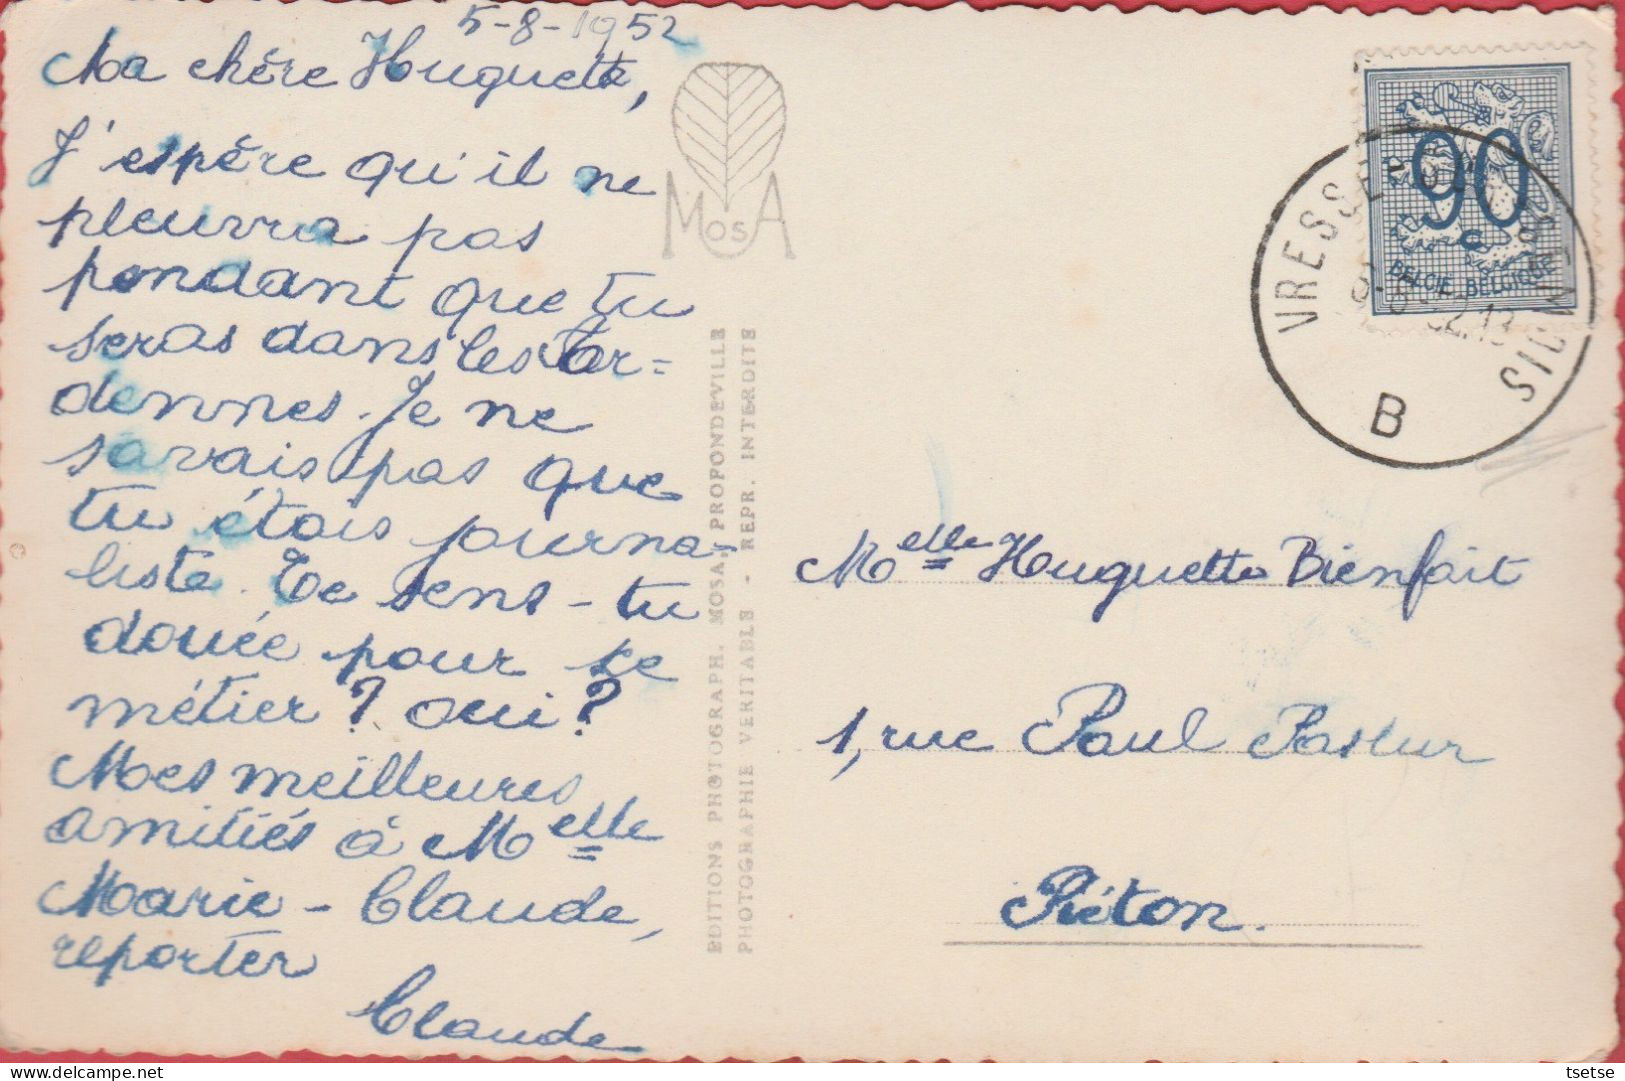 5-8-1952
Ma chère Huguette,
J'espère qu'il ne
pleuvra pas
pendant que tu
seras dans les Ar=
dennes. Je ne
savais pas que
tu étais journa-
liste. Te sens-tu
douée pour ce
métier ? oui ?
Mes meilleures
amitiés à Melle
Marie-Claude,
reporter
Claude
MOSA
EDITIONS PHOTOGRAPH. MOSA, PROPONDEVILLE
PHOTOGRAPHIE VERITABLE - REPR. INTERDITE
90
C
BELGIE-BELGIQUE
VRESSE
B
Melle Huguette Bienfait
1, rue Paul Pastur
Piéton.
tsetse